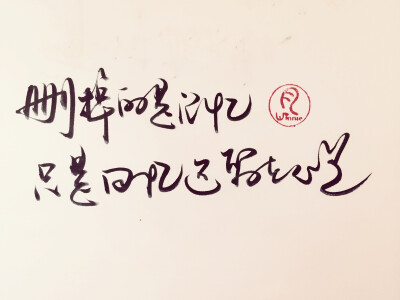 删掉的是记忆
只是回忆还在心